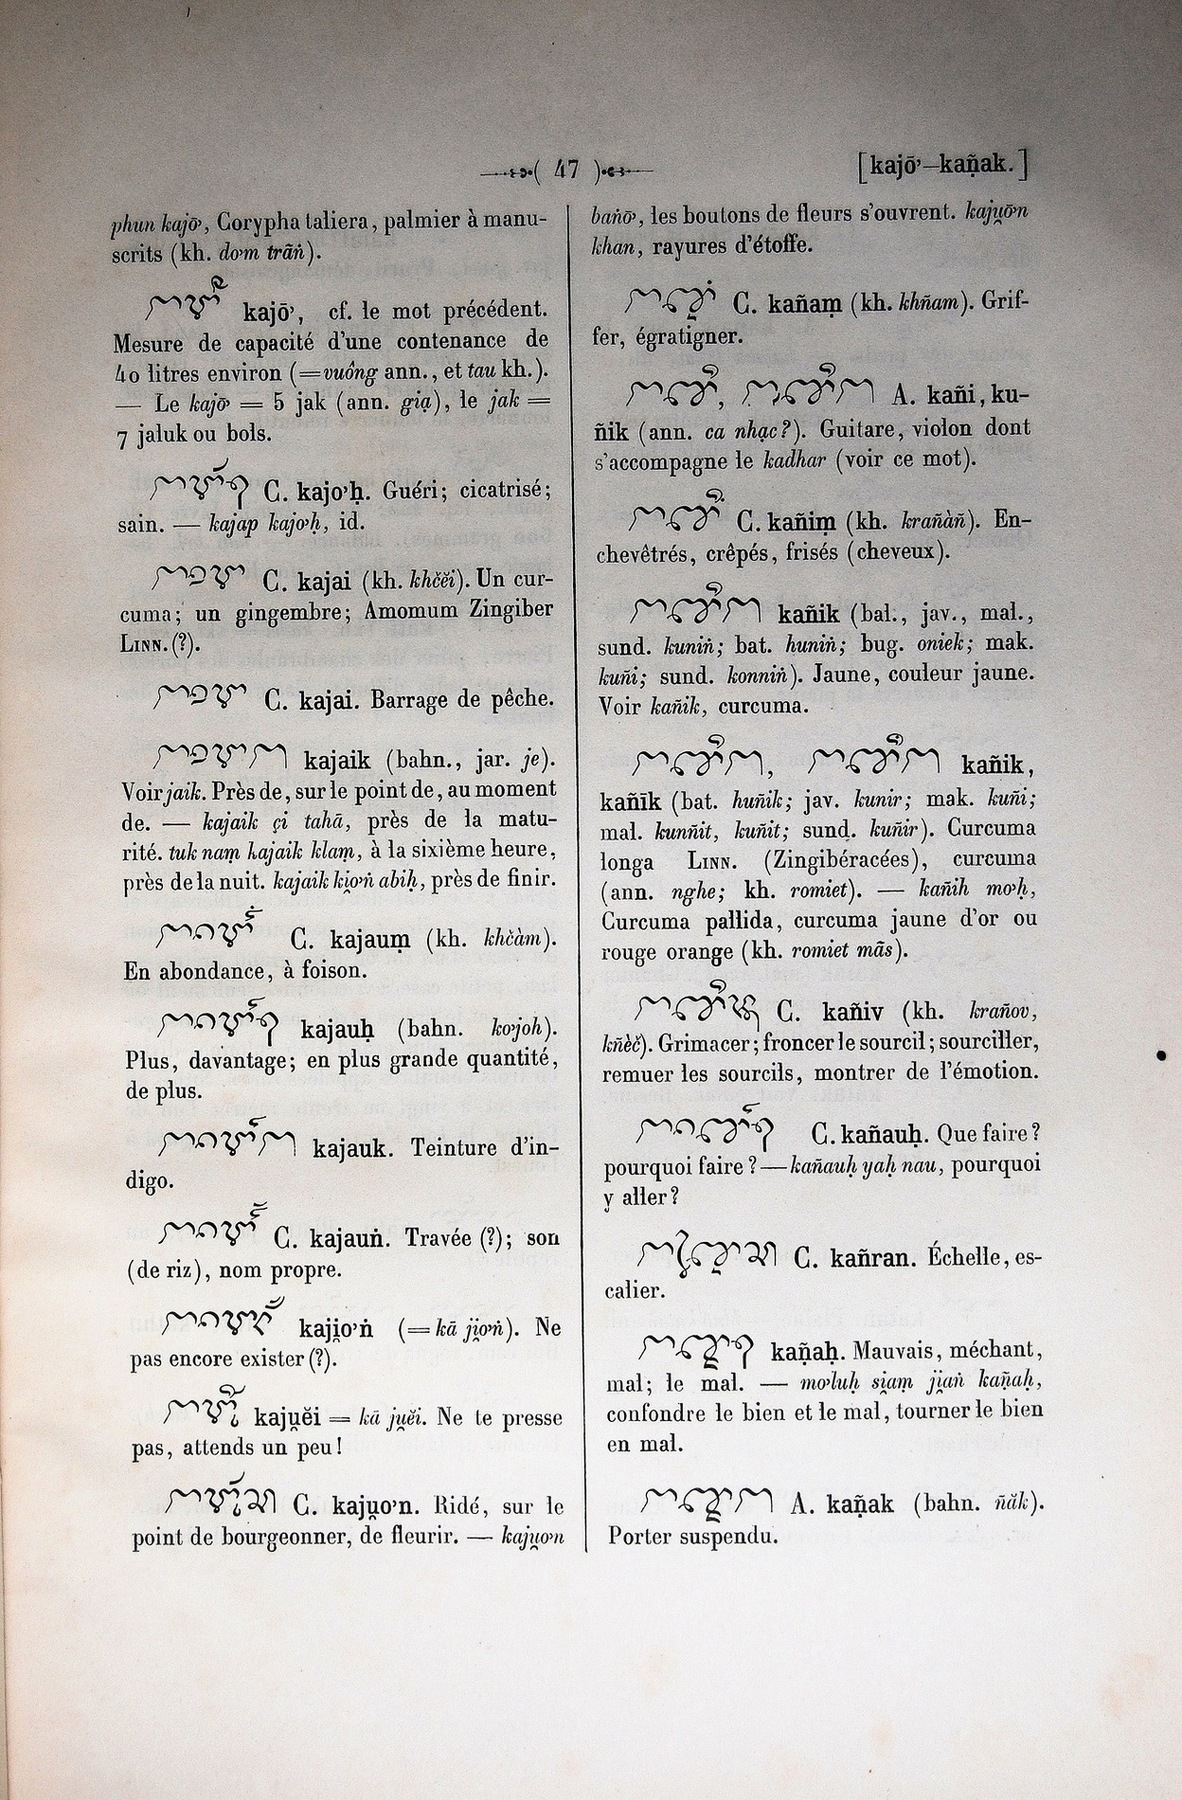 47
[kajō’—kaṇ̃ak.]
phun kajō’, Corypha taliera, palmier à manu-
scrits (kh. do’m trãṅ).
kajō’, cf. le mot précédent.
Mesure de capacité d’une contenance de
40 litres environ (=vuông ann., et tau kh.).
— Le kajō’ = 5 jak (ann. giạ), le jak =
7 jaluk ou bols.
C. kajo’ḥ. Guéri; cicatrisé;
sain. — kajap kajo’ḥ, id.
C. kajai (kh. khčĕi). Un cur-
cuma; un gingembre; Amomum Zingiber
LINN. (?).
C. kajai. Barrage de pêche.
kajaik (bahn., jar. je).
Voir jaik. Près de, sur le point de, au moment
de. — kajaik çi tahā, près de la matu-
rité. tuk naṃ kajaik klaṃ, à la sixième heure,
près de la nuit. kajaik ki̯o’ṅ abiḥ, près de finir.
C. kajauṃ (kh. khčàm).
En abondance, à foison.
kajauḥ (bahn. ko’joh).
Plus, davantage; en plus grande quantité,
de plus.
kajauk. Teinture d’in-
digo.
C. kajauṅ. Travée (?); son
(de riz), nom propre.
kaji̯o’ṅ (= kā ji̯o’ṅ). Ne
pas encore exister (?).
kaju̯ĕi = kā ju̯ĕi. Ne te presse
pas, attends un peu!
C. kaju̯o’n. Ridé, sur le
point de bourgeonner, de fleurir. — kaju̯o’n
baṅō’, les boutons de fleurs s’ouvrent. kaju̯ō’n
khan, rayures d’étoffe.
C. kañaṃ (kh. khñam). Grif-
fer, égratigner.
A. kañi, ku-
ñik (ann. ca nhạc?). Guitare, violon dont
s’accompagne le kadhar (voir ce mot).
C. kañiṃ (kh. krañàñ). En-
chevêtrés, crêpés, frisés (cheveux).
kañik (bal., jav., mal.,
sund. kuniṅ; bat. huniṅ; bug. oniek; mak.
kuñi; sund. konniṅ). Jaune, couleur jaune.
Voir kañik, curcuma.
kañik,
kañīk (bat. huñik; jav. kunir; mak. kuñi;
mal. kunñit, kuñit; sund. kuñir). Curcuma
longa LINN. (Zingibéracées), curcuma
(ann. nghe; kh. romiet). — kañih mo’ḥ,
Curcuma pallida, curcuma jaune d’or ou
rouge orange (kh. romiet mãs).
C. kañiv (kh. krañov,
kñèč). Grimacer; froncer le sourcil; sourciller,
remuer les sourcils, montrer de l’émotion.
C. kañauḥ. Que faire?
pourquoi faire? — kañauḥ yaḥ nau, pourquoi
y aller?
C. kañran. Échelle, es-
calier.
kaṇ̃aḥ. Mauvais, méchant,
mal; le mal. — mo’luḥ si̯aṃ ji̯aṅ kaṇ̃aḥ,
confondre le bien et le mal, tourner le bien
en mal.
A. kaṇ̃ak (bahn. ñăk).
Porter suspendu.